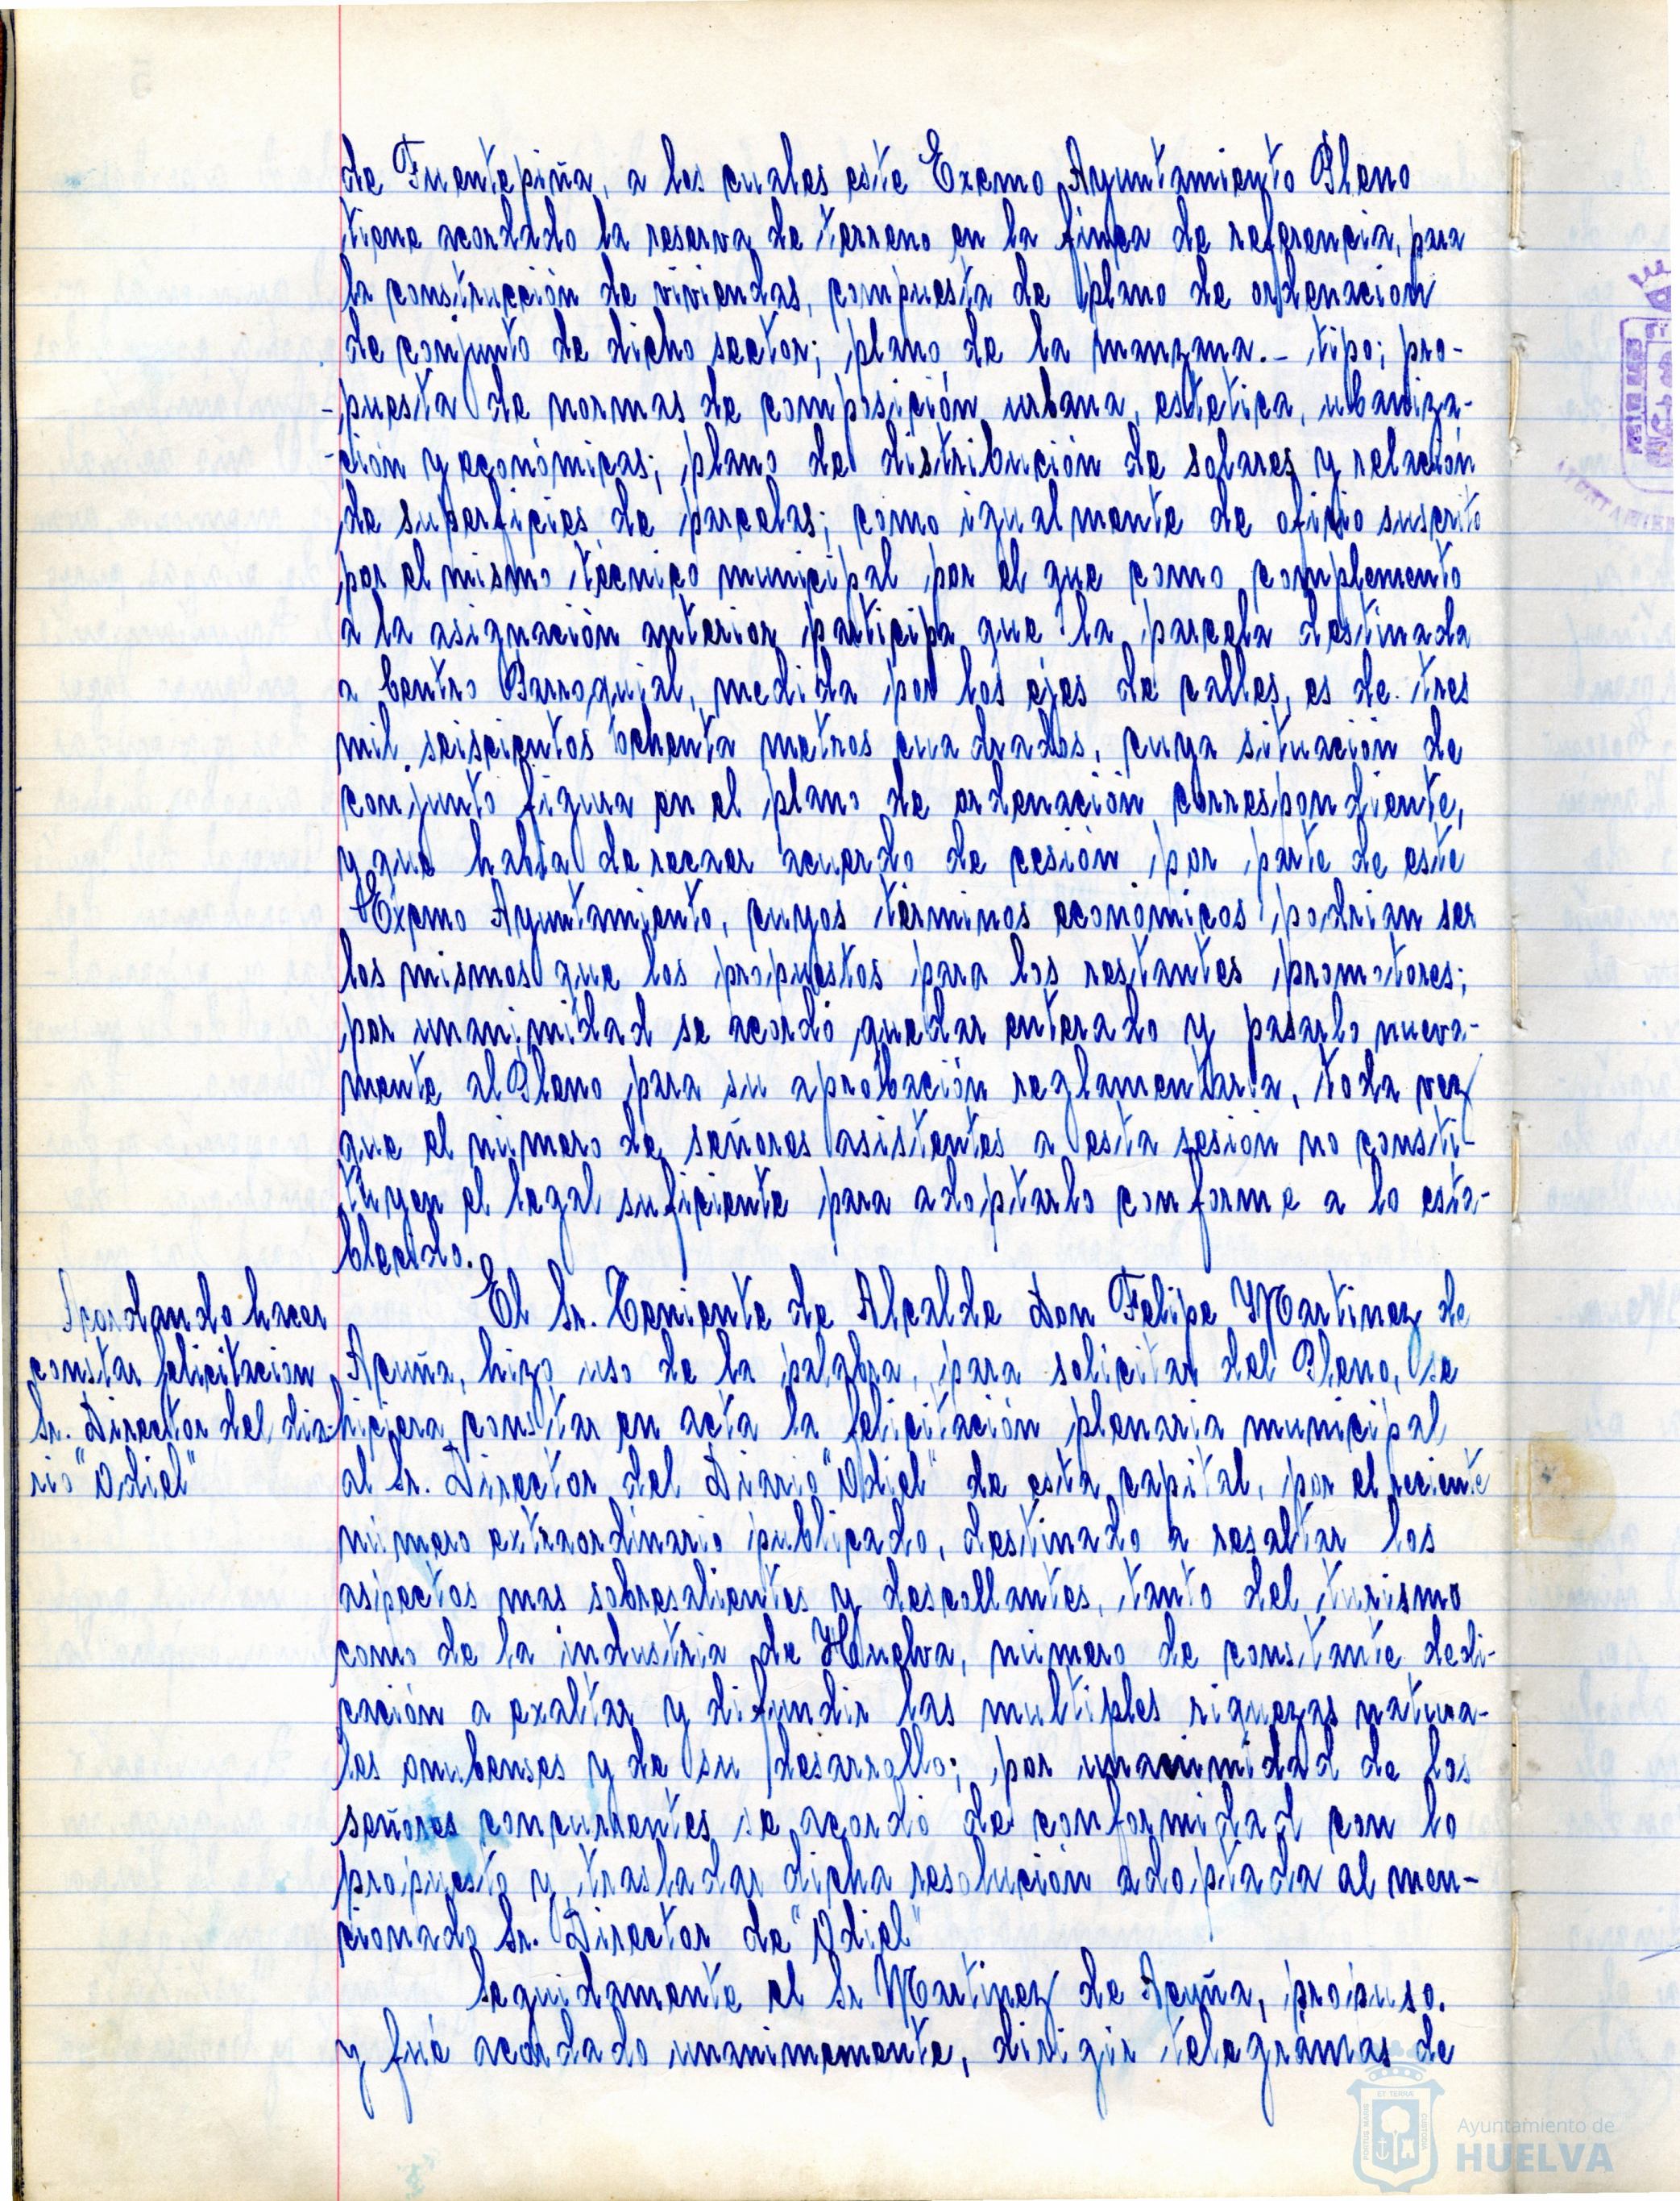 de Fuentepiña, a los cuales este Excmo Ayuntamiento Pleno
tiene acordado la reserva de terreno en la finca de referencia, para
la construcción de viviendas, compuesta de plano de ordenacion
de conjunto de dicho sector; plano de la manzana.- tipo; pro-
-puesta de normas de composición urbana, estetica, ubaniza-
-ción y económicas; plano de distribución de solares y relación
de superficies de parcelas; como igualmente de oficio suscrito
por el mismo técnico municipal por el que como complemento
a la asignación anterior participa que la parcela destinada
a Centro Parroquial, medida por los ejes de calles, es de tres
mil seiscientos ochenta metros cuadrados, cuya situación de
conjunto figura en el plano de ordenación correspondiente,
y que habia de recaer acuerdo de cesión por parte de este
Excmo Ayuntamiento, cuyos términos económicos podrian ser
los mismos que los propuestos para los restantes promotores;
por unanimidad se acordó quedar enterado y pasarlo nueva-
mente al Pleno para su aprobación reglamentaria, toda vez
que el número de señores asistentes a esta sesión no consti-
tuyen el legal suficiente para adoptarlo conforme a lo esta-
blecido.
Acordando hacer
constar felicitacion
Sr. Director del dia-
rio "Odiel"
El Sr. Teniente de Alcalde Don Felipe Martinez de
Acuña, hizo uso de la palabra, para solicitar del Pleno, se
hiciera constar en acta la felicitación plenaria municipal
al Sr. Director del Diario "Odiel" de esta capital, por el reciente
número extraordinario publicado, destinado a resaltar los
aspectos mas sobresalientes y descollantes, tanto del turismo
como de la industria de Huelva, número de constante dedi-
cación a exaltar y difundir las multiples riquezas natura-
les onubenses y de su desarrollo; por unanimidad de los
señores concurrentes se acordó de conformidad con lo
propuesto y trasladar dicha resolución adoptada al men-
cionado Sr. Director de "Odiel"
Seguidamente el Sr Martinez de Acuña, propuso.
y fué acordado unanimemente, dirigir telegramas de
Ayuntamiento de
HUELVA